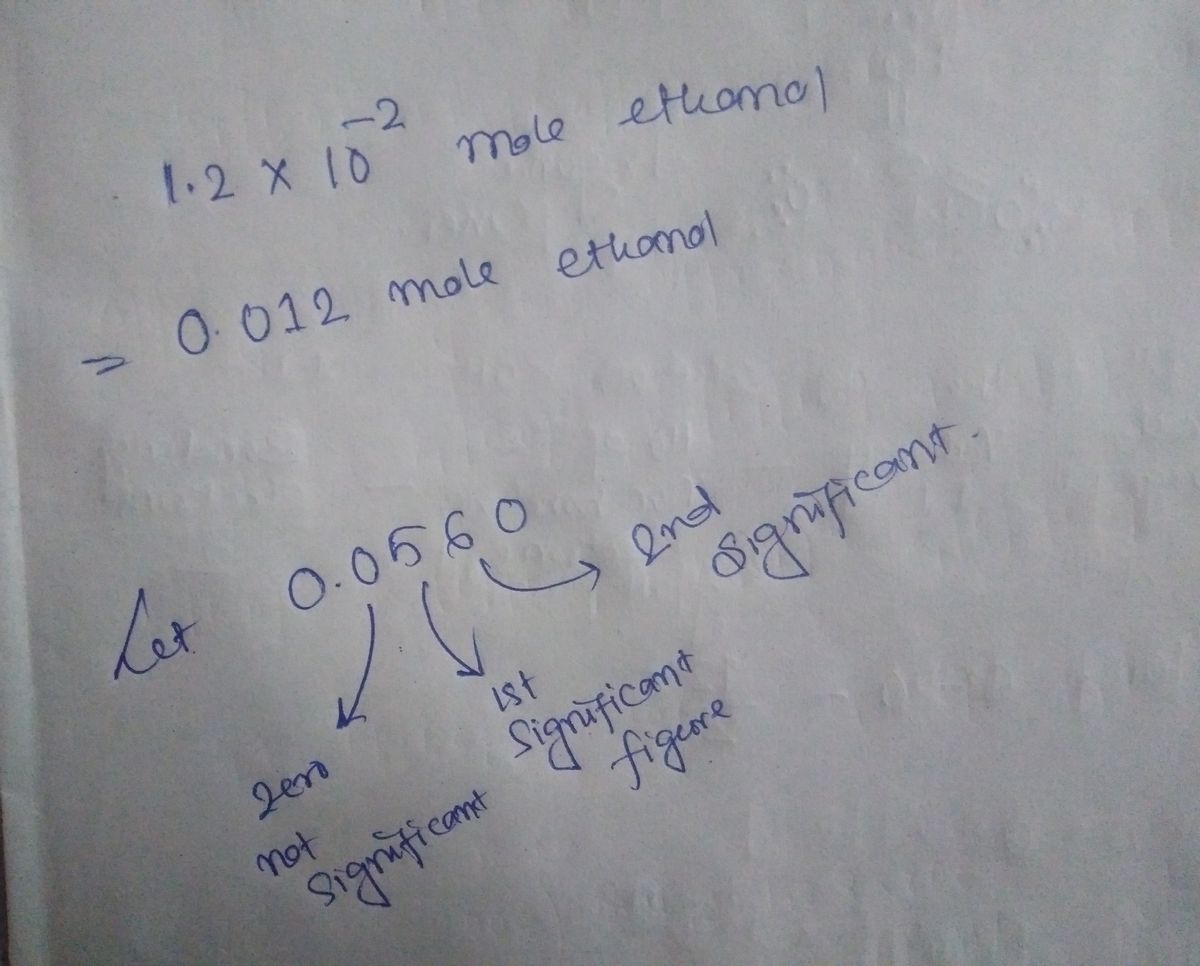 1.2 × 10⁻² mole ethanol
= 0.012 mole ethanol
Let 0.0560
2nd
significant.
1st
significant
figure
zero
not
significant